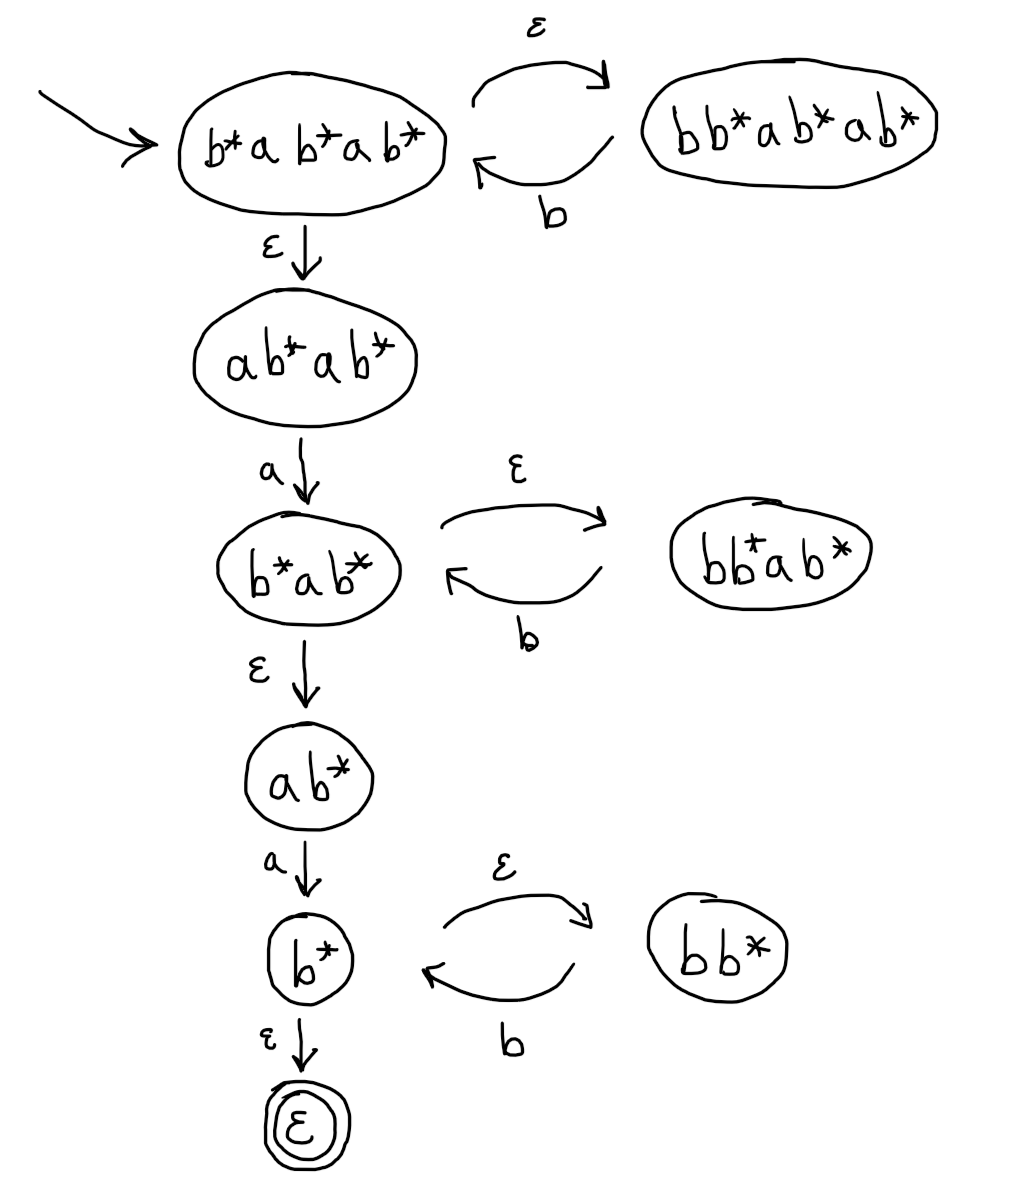 ε
b*ab*ab* bb*ab*ab*
b
ε
ab*ab*
a ε
b*ab* bb*ab*
b
ε
ab*
a ε
b* bb*
ε b
ε